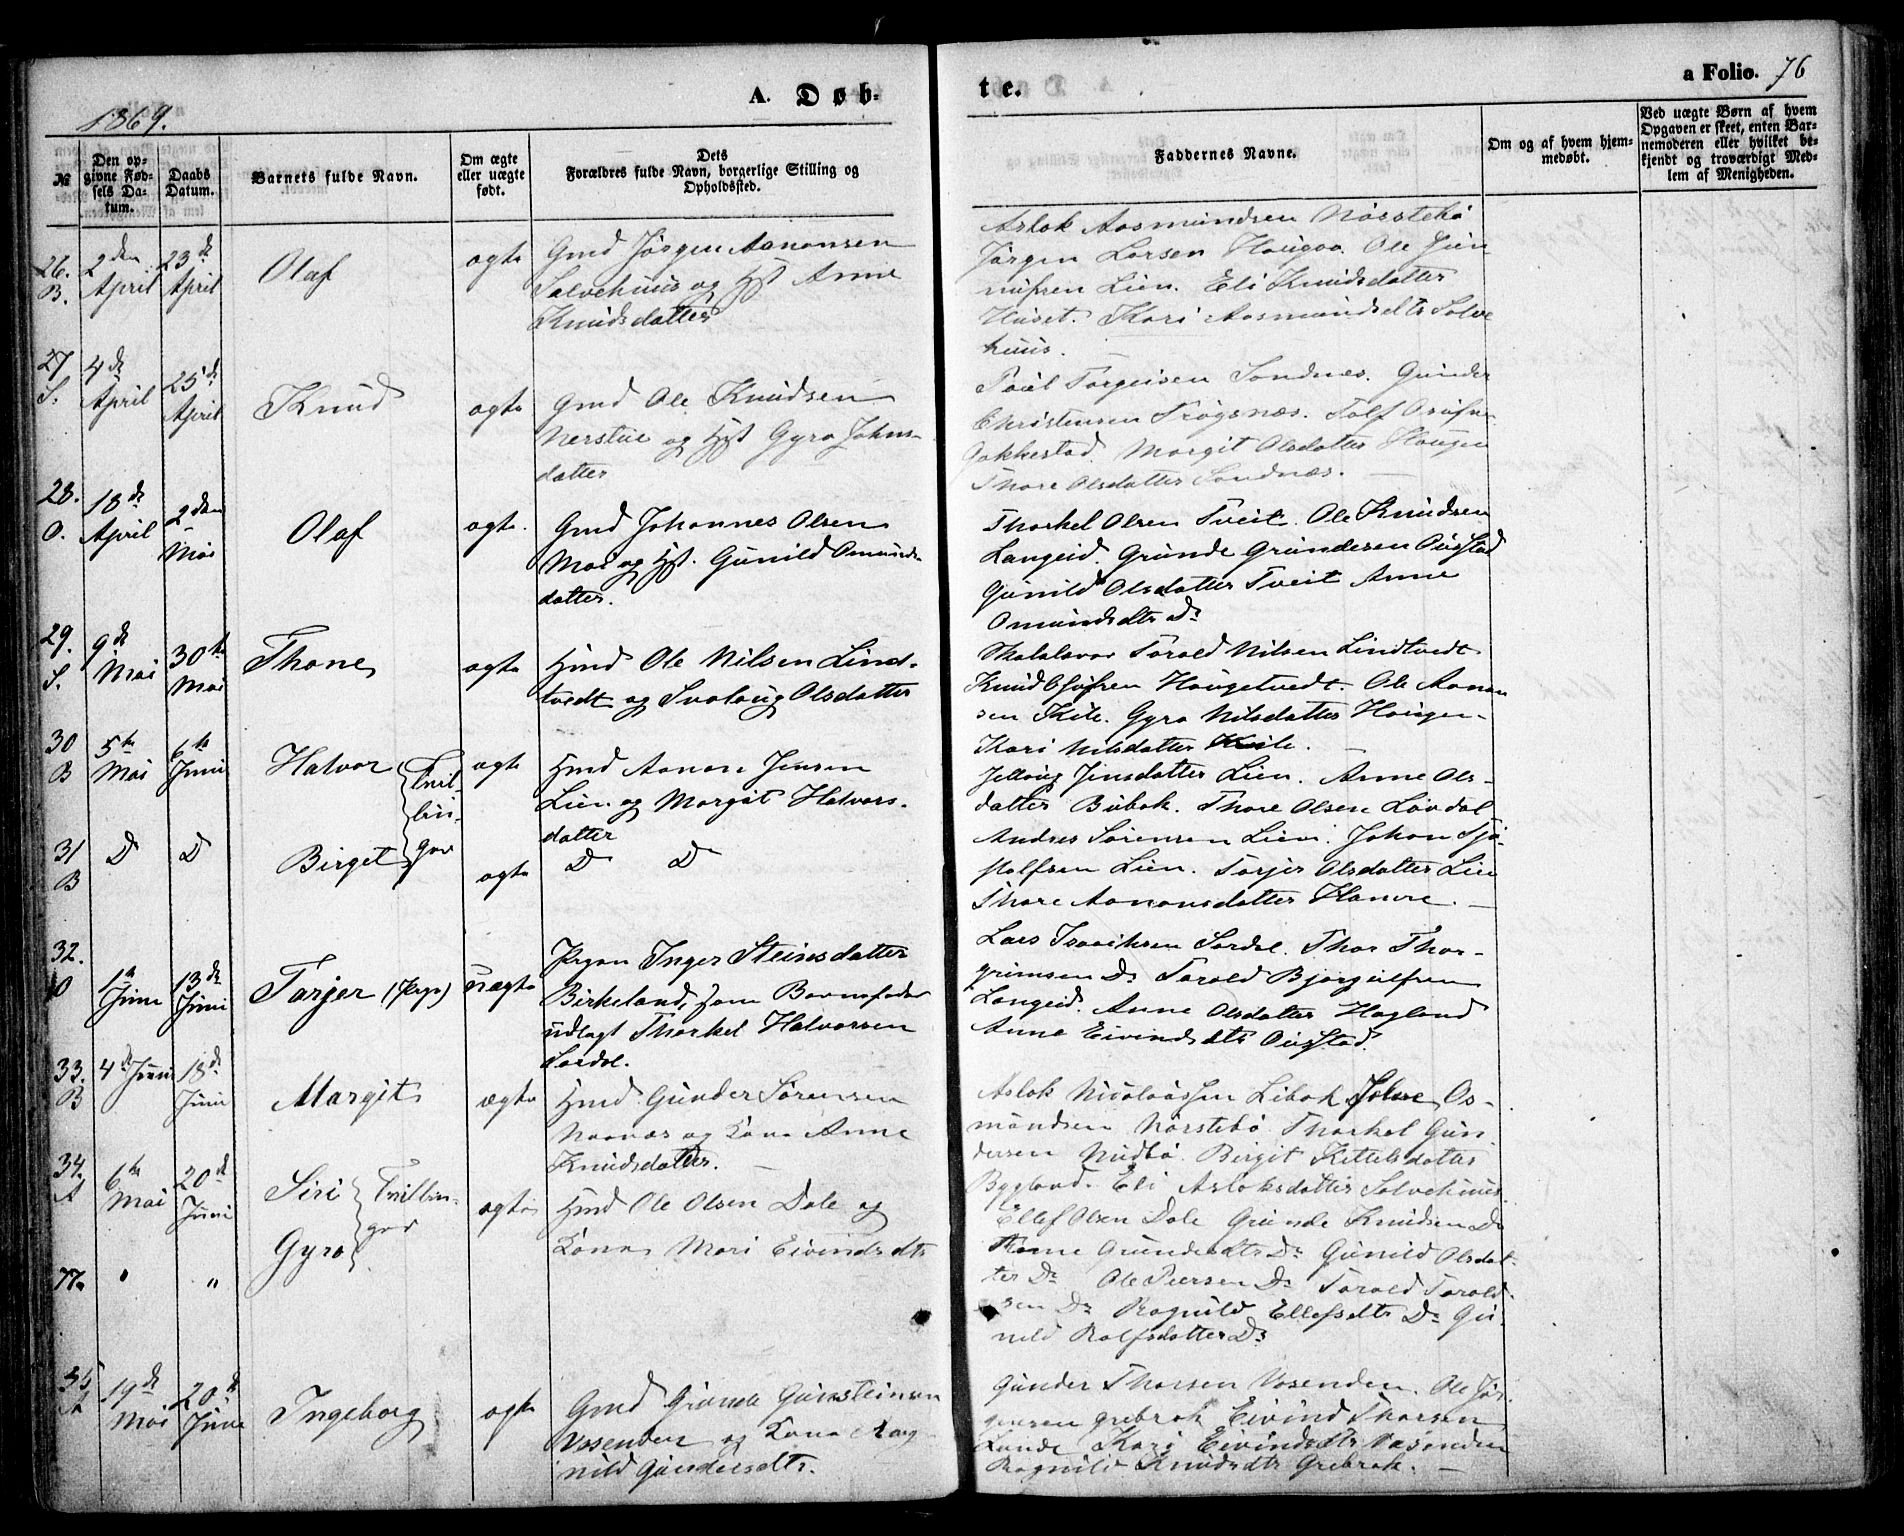 1869.
A. Døb-
te.
a Folio. 76
№
Den op-
givne Fød-
sels Da-
tum.
Daabs
Datum.
Barnets fulde Navn.
Om ægte
eller uægte
født.
Dets
Forældres fulde Navn, borgerlige Stilling og
Opholdssted.
Faddernes Navne.
Om og af hvem hjem-
medøbt.
Ved uægte Børn af hvem
Opgaven er skeet, enten Bar-
nemoderen eller hvilket be-
kjendt og troværdigt Med-
lem af Menigheden.
26.
B.
2den
April
23de
April
Olaf
ægte
Gmd Jørgen Aanonsen
Solvehuus og Hst Anne
Knudsdatter
Aslak Aasmundsen Nørstebø
Jørgen Larsen Haugaa. Ole
Lien. Eli Knudsdatter
Huset. Kari Aasmundsdtr Solve
huus.
27
S.
4de
April
25de
April
Knud
ægte
Gmd Ole Knudsen
Nerstue og Hst Gyro Johns-
datter
Torgeisen Sandnæs. Gunder
Christensen Trøgsnæs.
Gakkestad. Margit Olsdatter Haugen
Thore Olsdatter Sandnæs.
28.
O.
18de
April
2den
Mai
Olaf
ægte.
Gmd Johannes Olsen
Moi og Hst. Gunild Omunds-
datter.
Thorkel Olsen Tveit. Ole Knudsen
Langeid. Grunde Grundesen Ousstad
Gunild Olsdatter Tveit Anne
Omundsdtr Do
29.
S.
9de
Mai
30te
Mai
Thone
ægte
Hmd Ole Nilsen Lind-
tvedt og Svalaug Olsdatter
Torald Nilsen Lindtvedt
Knud Haugetvedt. Ole Aanon
sen Kile. Gyro Nilsdatter Haugen
Kari Nilsdatter Kile.
30
B
5te
Mai
6te
Juni
Halvor
Tvil-
lin-
ger
ægte
Hmd Aanon Jensen
Lien og Margit Halvors-
datter
Lien. Anne Ols-
datter Bubak. Thore Olsen Løvdal
31
B
D
D
Birget
ægte
D D
Andres Sørensen Lien. Johan
Lien. Torjer Olsdatter Lien
Thore Aanonsdatter Hamre.
32.
O
1ste
Juni
13de
Juni
Torjer (Pige)
uægte
Pigen Inger Steinsdatter
Birkeland, som Barnefader
udlagt Thorkel Halvorsen
Sordal.
Lars Isaaksen Sordal. Thor Thor-
grimsen Do Torald Bjorgulfsen
Langeid. Anne Olsdatter Hagland
Anne Eivindsdtr Ousstad.
33.
B
4de Juni
18de
Juni
Margit
ægte
Hmd Gunder Sørensen
Naanæs og Kone Anne
Knudsdatter.
Aslak Nicolaissen Libak Os-
mundsen Nørstebø. Thorkel Gun-
dersen Nudbø. Birgit Kittelsdatter
Bygland. Eli Aslaksdatter Solvehuus
34.
A
6te
Mai
20de
Juni
Siri
Gyro
Tvillin-
ger
ægte
Hmd Ole Olsen Dale og
Kone Mari Eivindsdtr
Ellef Olsen Dale Grunde Knudsen Do
Grundesdtr Do Gunild Olsdat-
ter Do Ole Peersen Do Torald Torald-
sen Do Ragnild Ellefsdtr Do Gu-
nild Rolfsdatter Do
"
35
A
19de
Mai
20de
Juni
Ingeborg
ægte
Gmd Grunde Gunsteinsen
Vasenden og Kone Rag-
nild Gundersdtr.
Gunder Thorsen Vasenden. Ole Jør-
gensen Grebrok Eivind Thorsen
Lande Kari Eivindsdtr Vasenden
Ragnild Knudsdtr Grebrok.